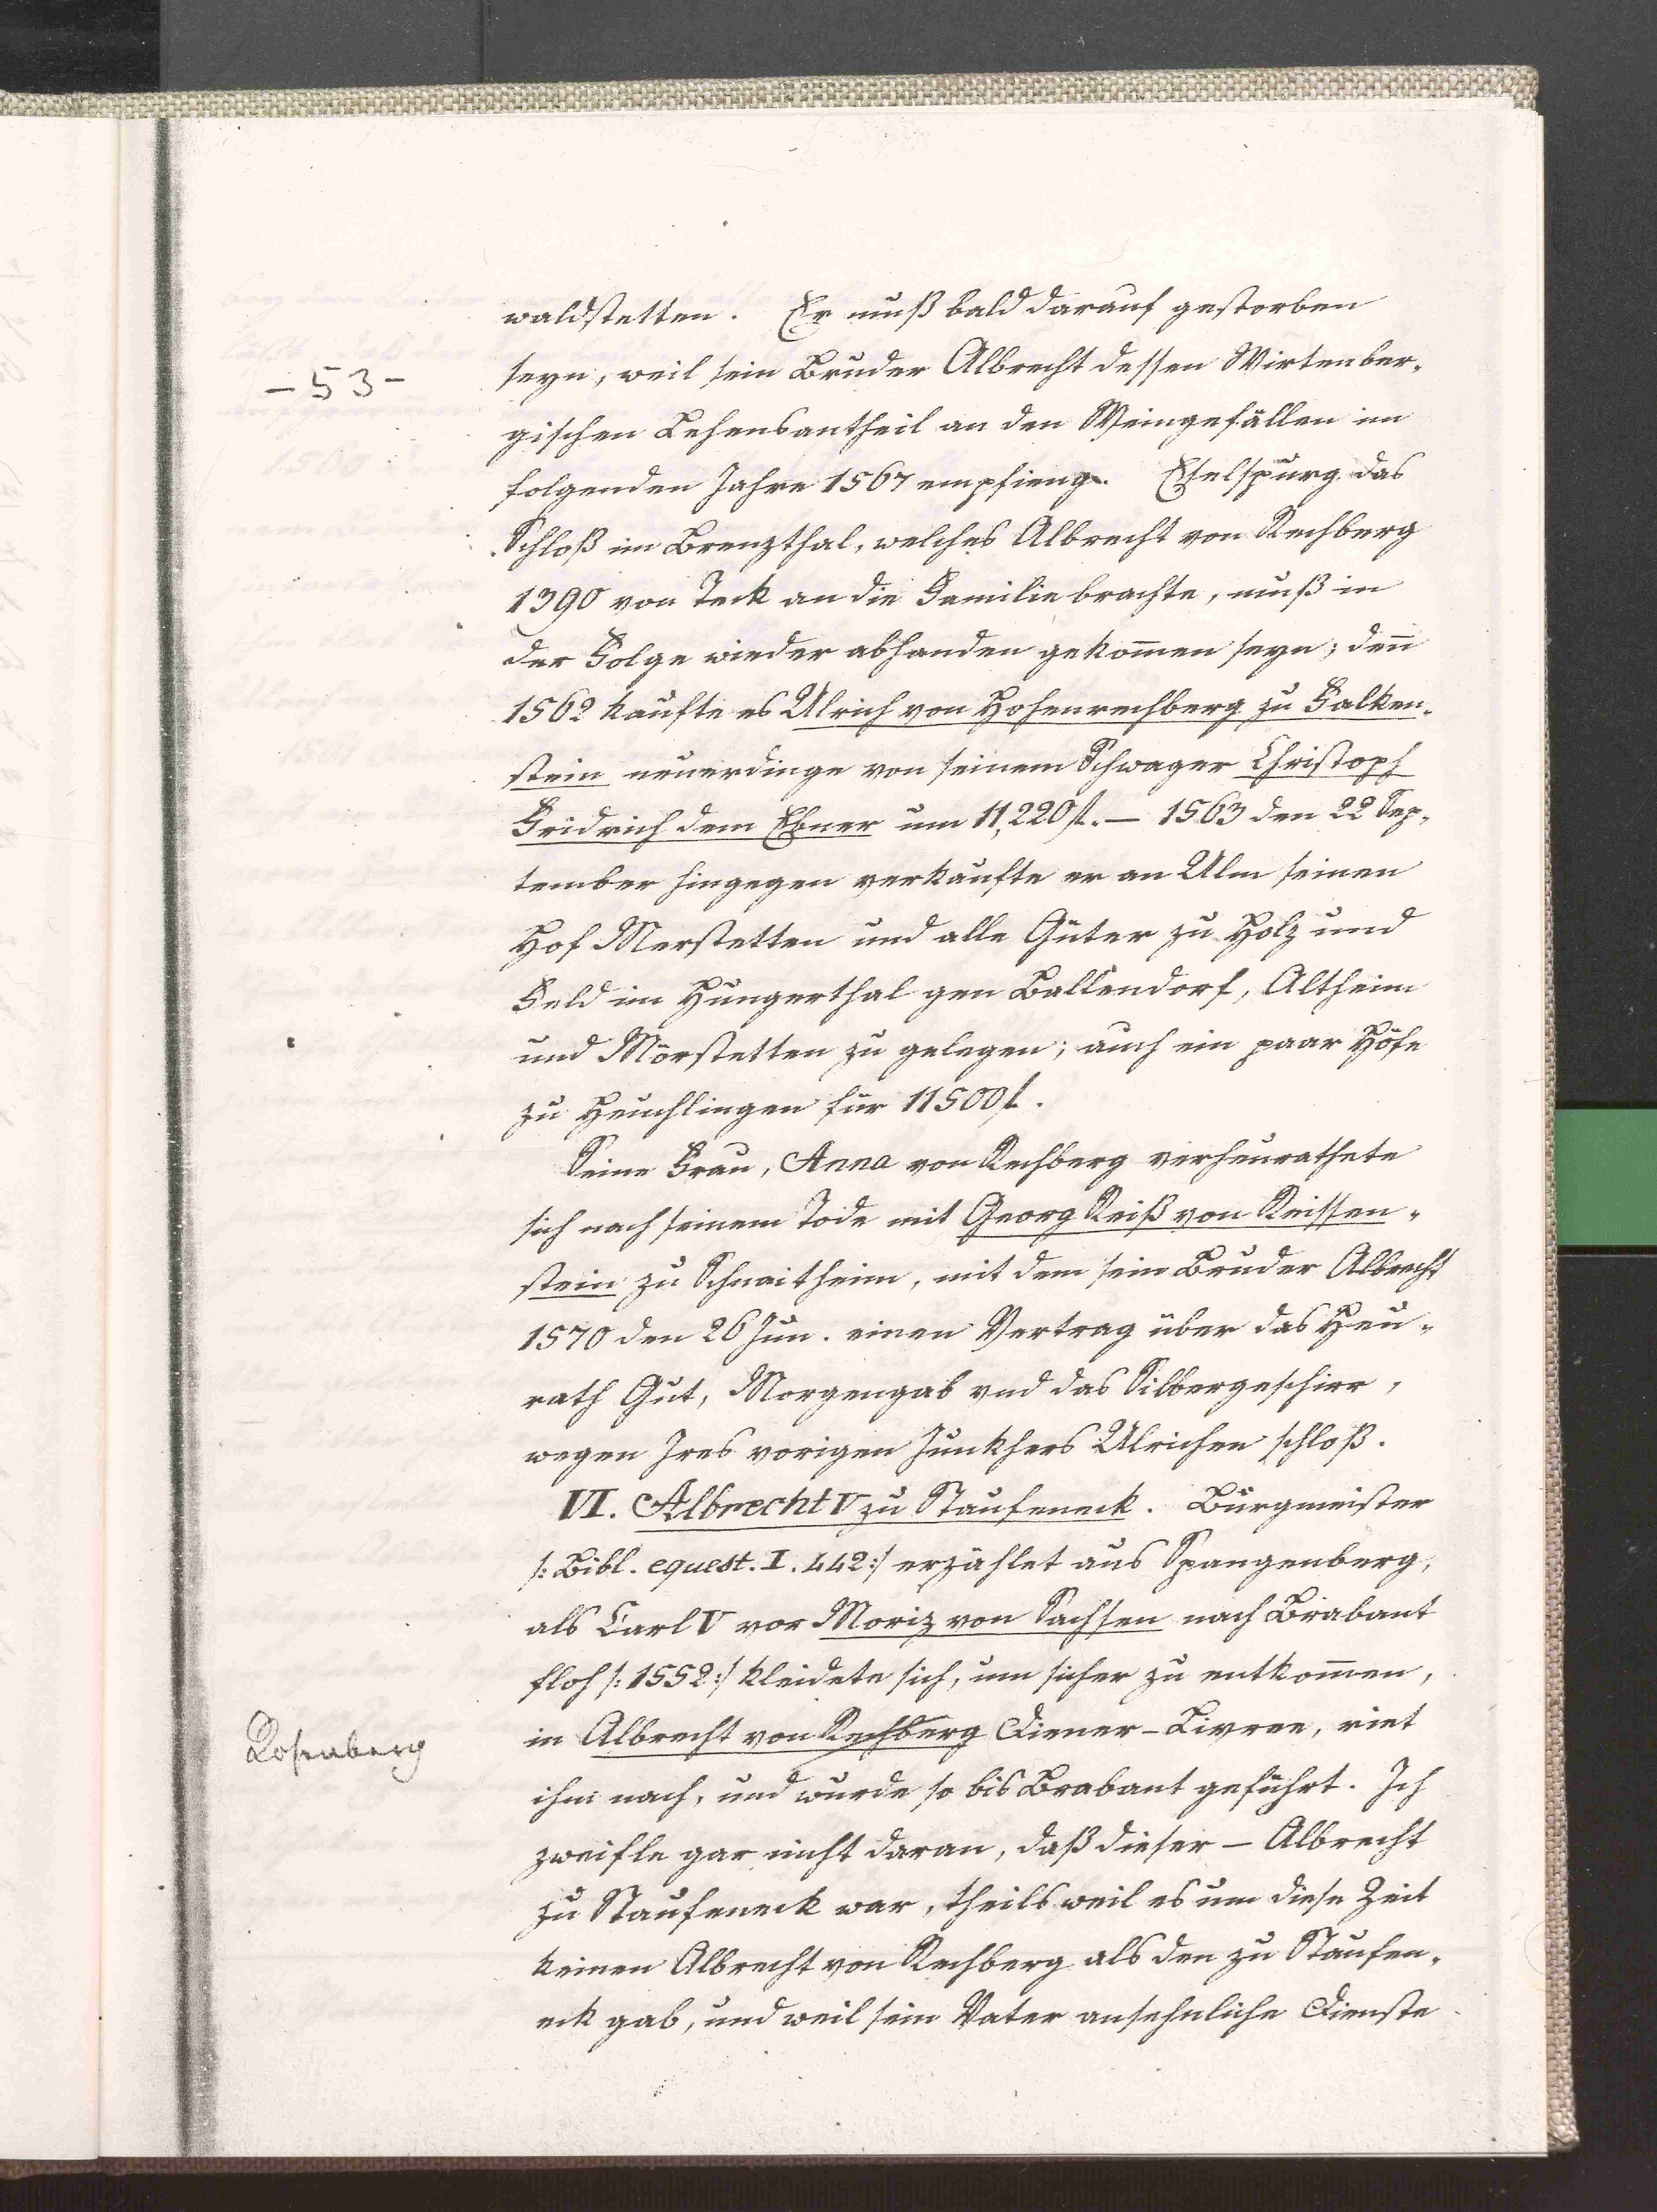 waldstetten. Er muß bald darauf gestorben
- 53 -
seyn, weil sein Bruder Albrecht dessen Wirtenber-
gischen Lehensantheil an den Weingefällen im
folgenden Jahre 1567 empfieng. Eselspurg das
Schloß im Brenzthal, welches Albrecht von Rechberg
1390 von Teck an die Familie brachte, muß in
der Folge wieder abhanden gekom̄en seyn; den̄
1562 kaufte es Ulrich von Hohenrechberg zu Falken-
stein neuerdings von seinem Schwager Christoph
Fridrich dem Ebner um 11,220 fl. — 1563 den 22 Sep-
tember hingegen verkaufte er an Ulm seinen
Hof Merstetten und alle Güter zu Holz und
Feld im Hungerthal gen Ballendorf, Altheim
und Mörstetten zu gelegen; auch ein paar Höfe
zu Heuchlingen für 11500 f.
Seine Frau, Anna von Rechberg verheurathete
sich nach seinem Tode mit Georg Reiß von Reissen-
stein zu Schnaitheim, mit dem sein Bruder Albrecht
1570 den 26 Jun. einen Vertrag über das Heu-
rath Gut, Morgengab vnd das Silbergeschirr,
wegen Ires vorigen Junkhers Ulrichen schloß.
VI. Albrecht V zu Staufeneck. Burgmeister
/: Bibl. equest. I. 442:/ erzählet aus Spangenberg,
als Carl V vor Moriz von Sachsen nach Brabant
floh /: 1552:/ kleidete sich, um sicher zu entkom̄en,
Rosenberg
in Albrecht von Rechberg Diener-Livree, riet
ihm nach, und wurde so bis Brabant geführt. Ich
zweifle gar nicht daran, daß dieser — Albrecht
zu Staufeneck war, theils weil es um diese Zeit
keinen Albrecht von Rechberg als den zu Staufen-
eck gab, und weil sein Vater ansehnliche Dienste